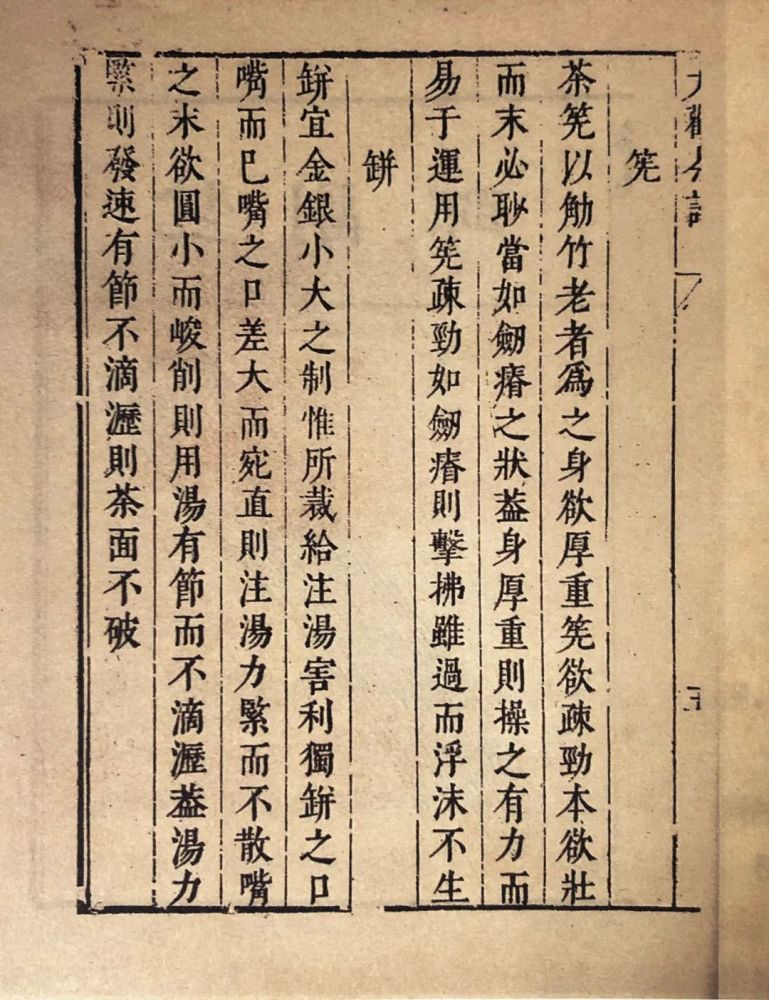 大觀茶論
筅
茶筅以觔竹老者爲之身欲厚重筅欲疎勁本欲壯
而末必眇當如劒瘠之狀葢身厚重則操之有力而
易于運用筅疎勁如劒瘠則擊拂雖過而浮沫不生
缾
缾宜金銀小大之制惟所裁給注湯害利獨缾之口
嘴而已嘴之口差大而宛直則注湯力緊而不散嘴
之末欲圓小而峻削則用湯有節而不滴瀝葢湯力
緊則發速有節不滴瀝則茶面不破